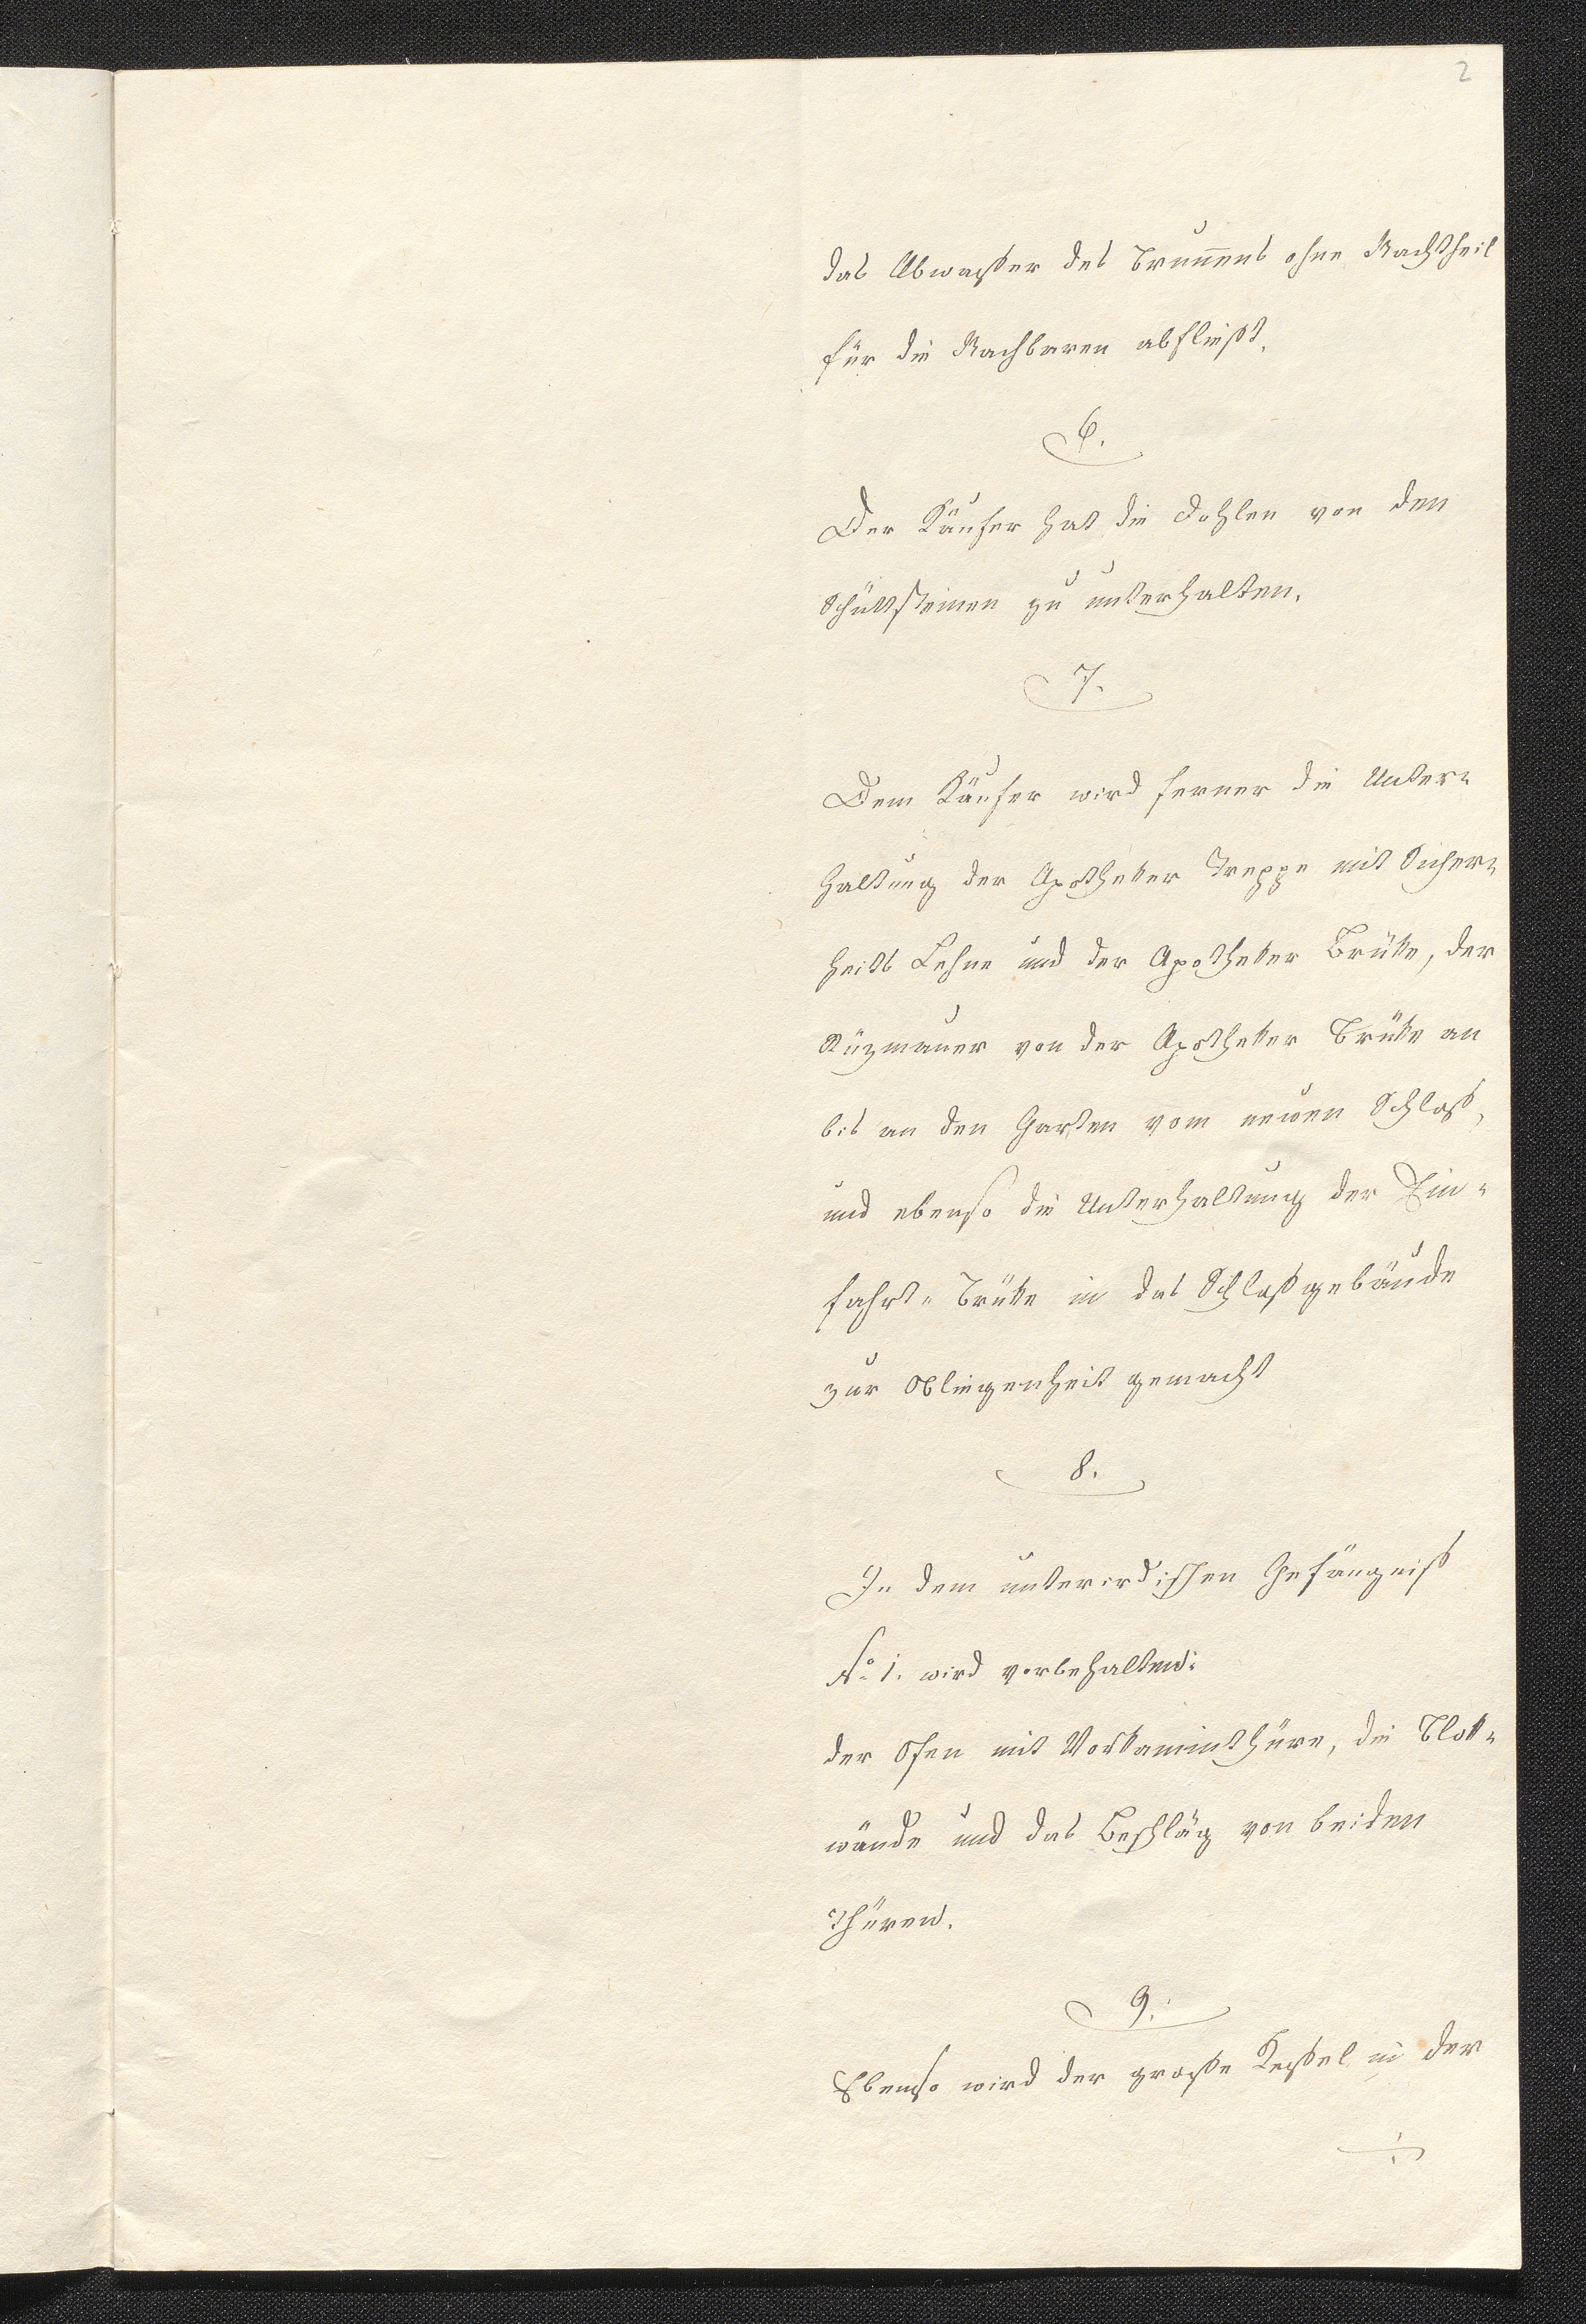 2
das Abwasser des Brunnens ohne Nachtheil
für die Nachbaren abfließt.
6.
Der Käufer hat die Dohlen von den
Schüttsteinen zu unterhalten.
7.
Dem Käufer wird ferner die Unter-
haltung der Apotheker Treppe mit Sicher-
heits Lehne und der Apotheker Brüke, der
Stüzmauer von der Apotheker Brüke an
bis an den Garten vom neuen Schloß,
und ebenso die Unterhaltung der Ein-
fahrt-Brüke in das Schloßgebäude
zur Obliegenheit gemacht
8.
In dem unterirdischen Gefängniß
No 1. wird vorbehalten:
der Ofen mit Vorkaminthüre, die Blok-
wände und das Beschläg von beiden
Thüren.
9.
Ebenso wird der große Kessel in der